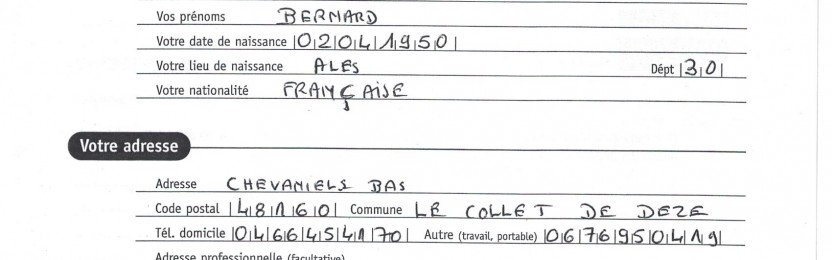 Vos prénoms BERNARD
Votre date de naissance |0|2|0|4|1|9|5|0|
Votre lieu de naissance ALES Dépt |3|0|
Votre nationalité FRANÇAISE
Votre adresse
Adresse CHEVANIELS BAS
Code postal |4|8|1|6|0| Commune LE COLLET DE DEZE
Tél. domicile |0|4|6|6|4|5|4|1|7|0| Autre (travail, portable) |0|6|7|6|9|5|0|4|1|9|
Adresse professionnelle (facultative)